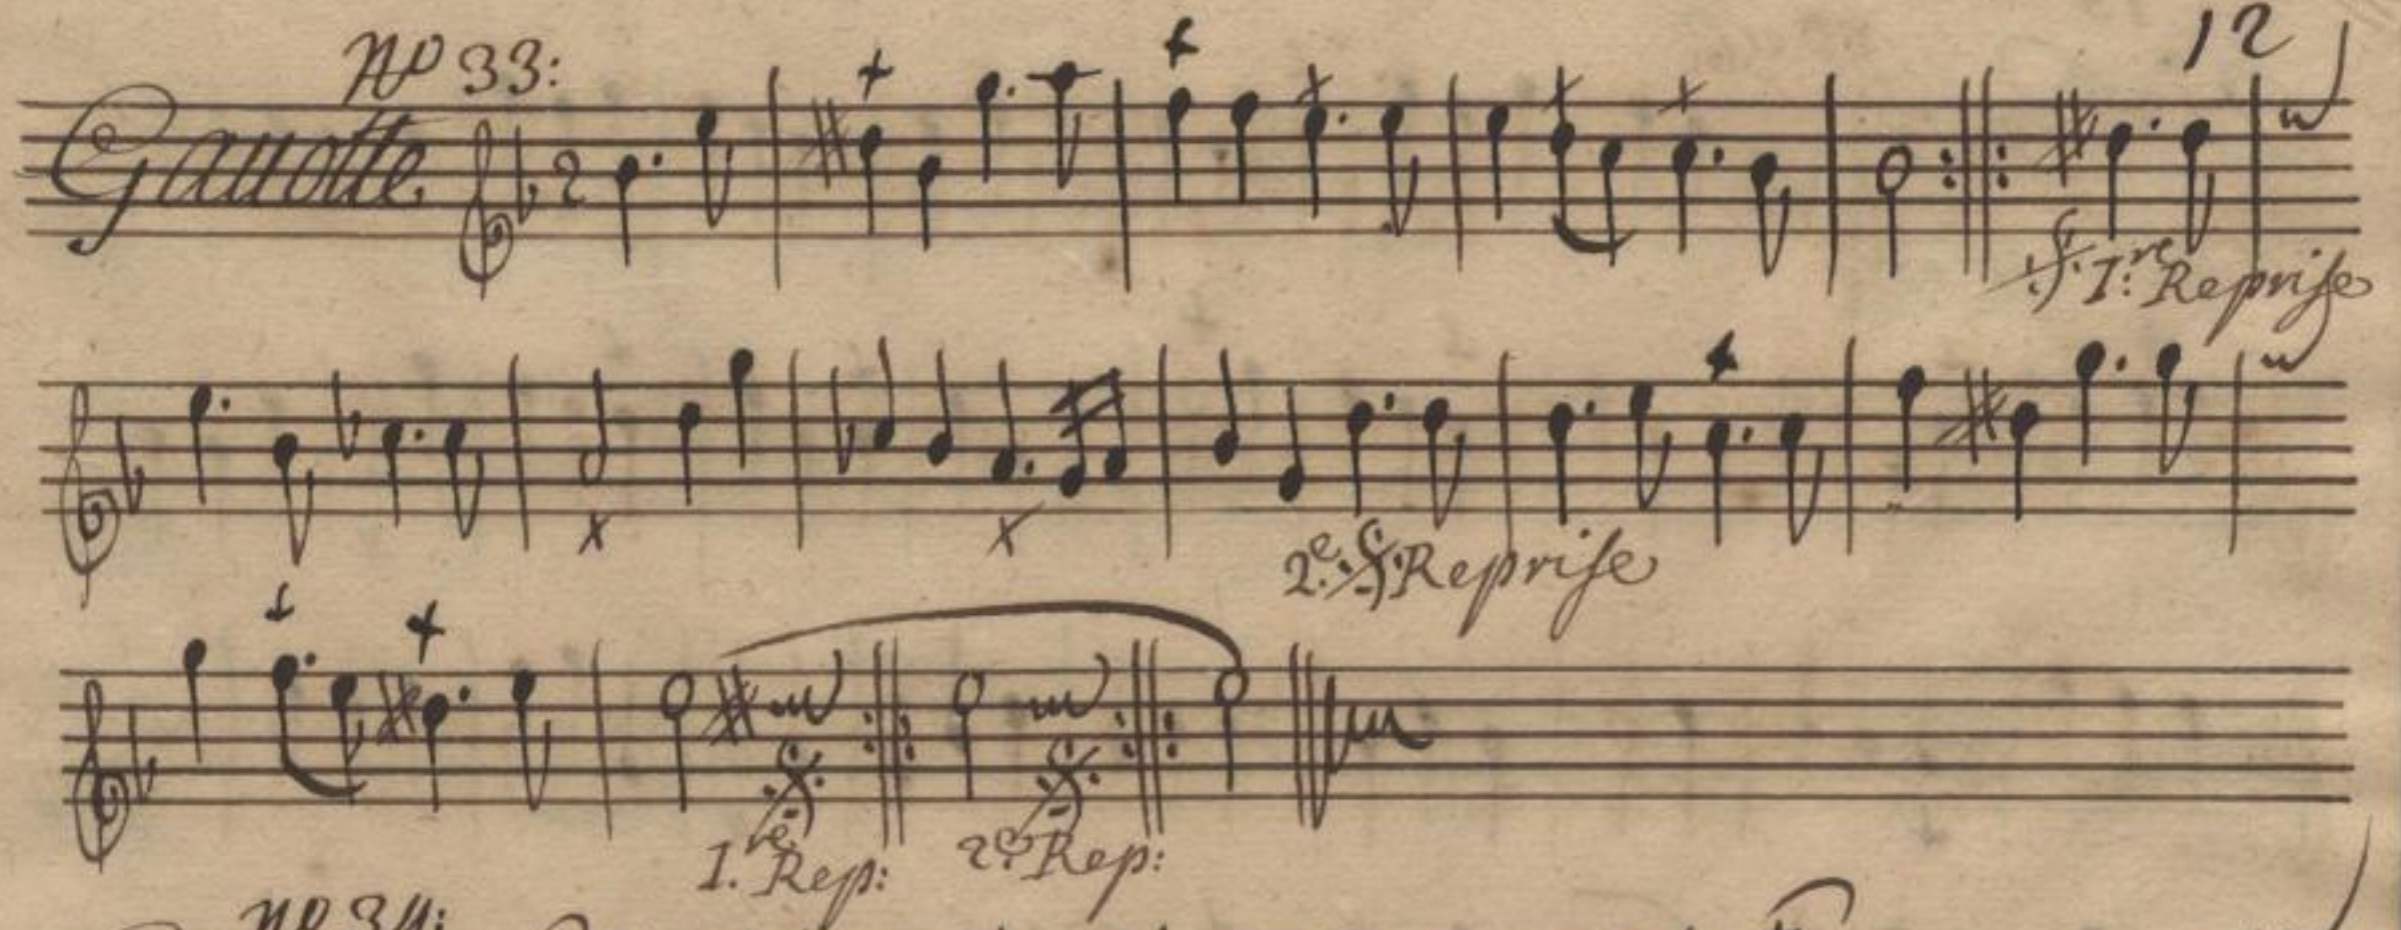 12
No 33:
Gauotte 2
1.re Reprise
2.e Reprise
1.re Rep: 2.e Rep:
No 34: